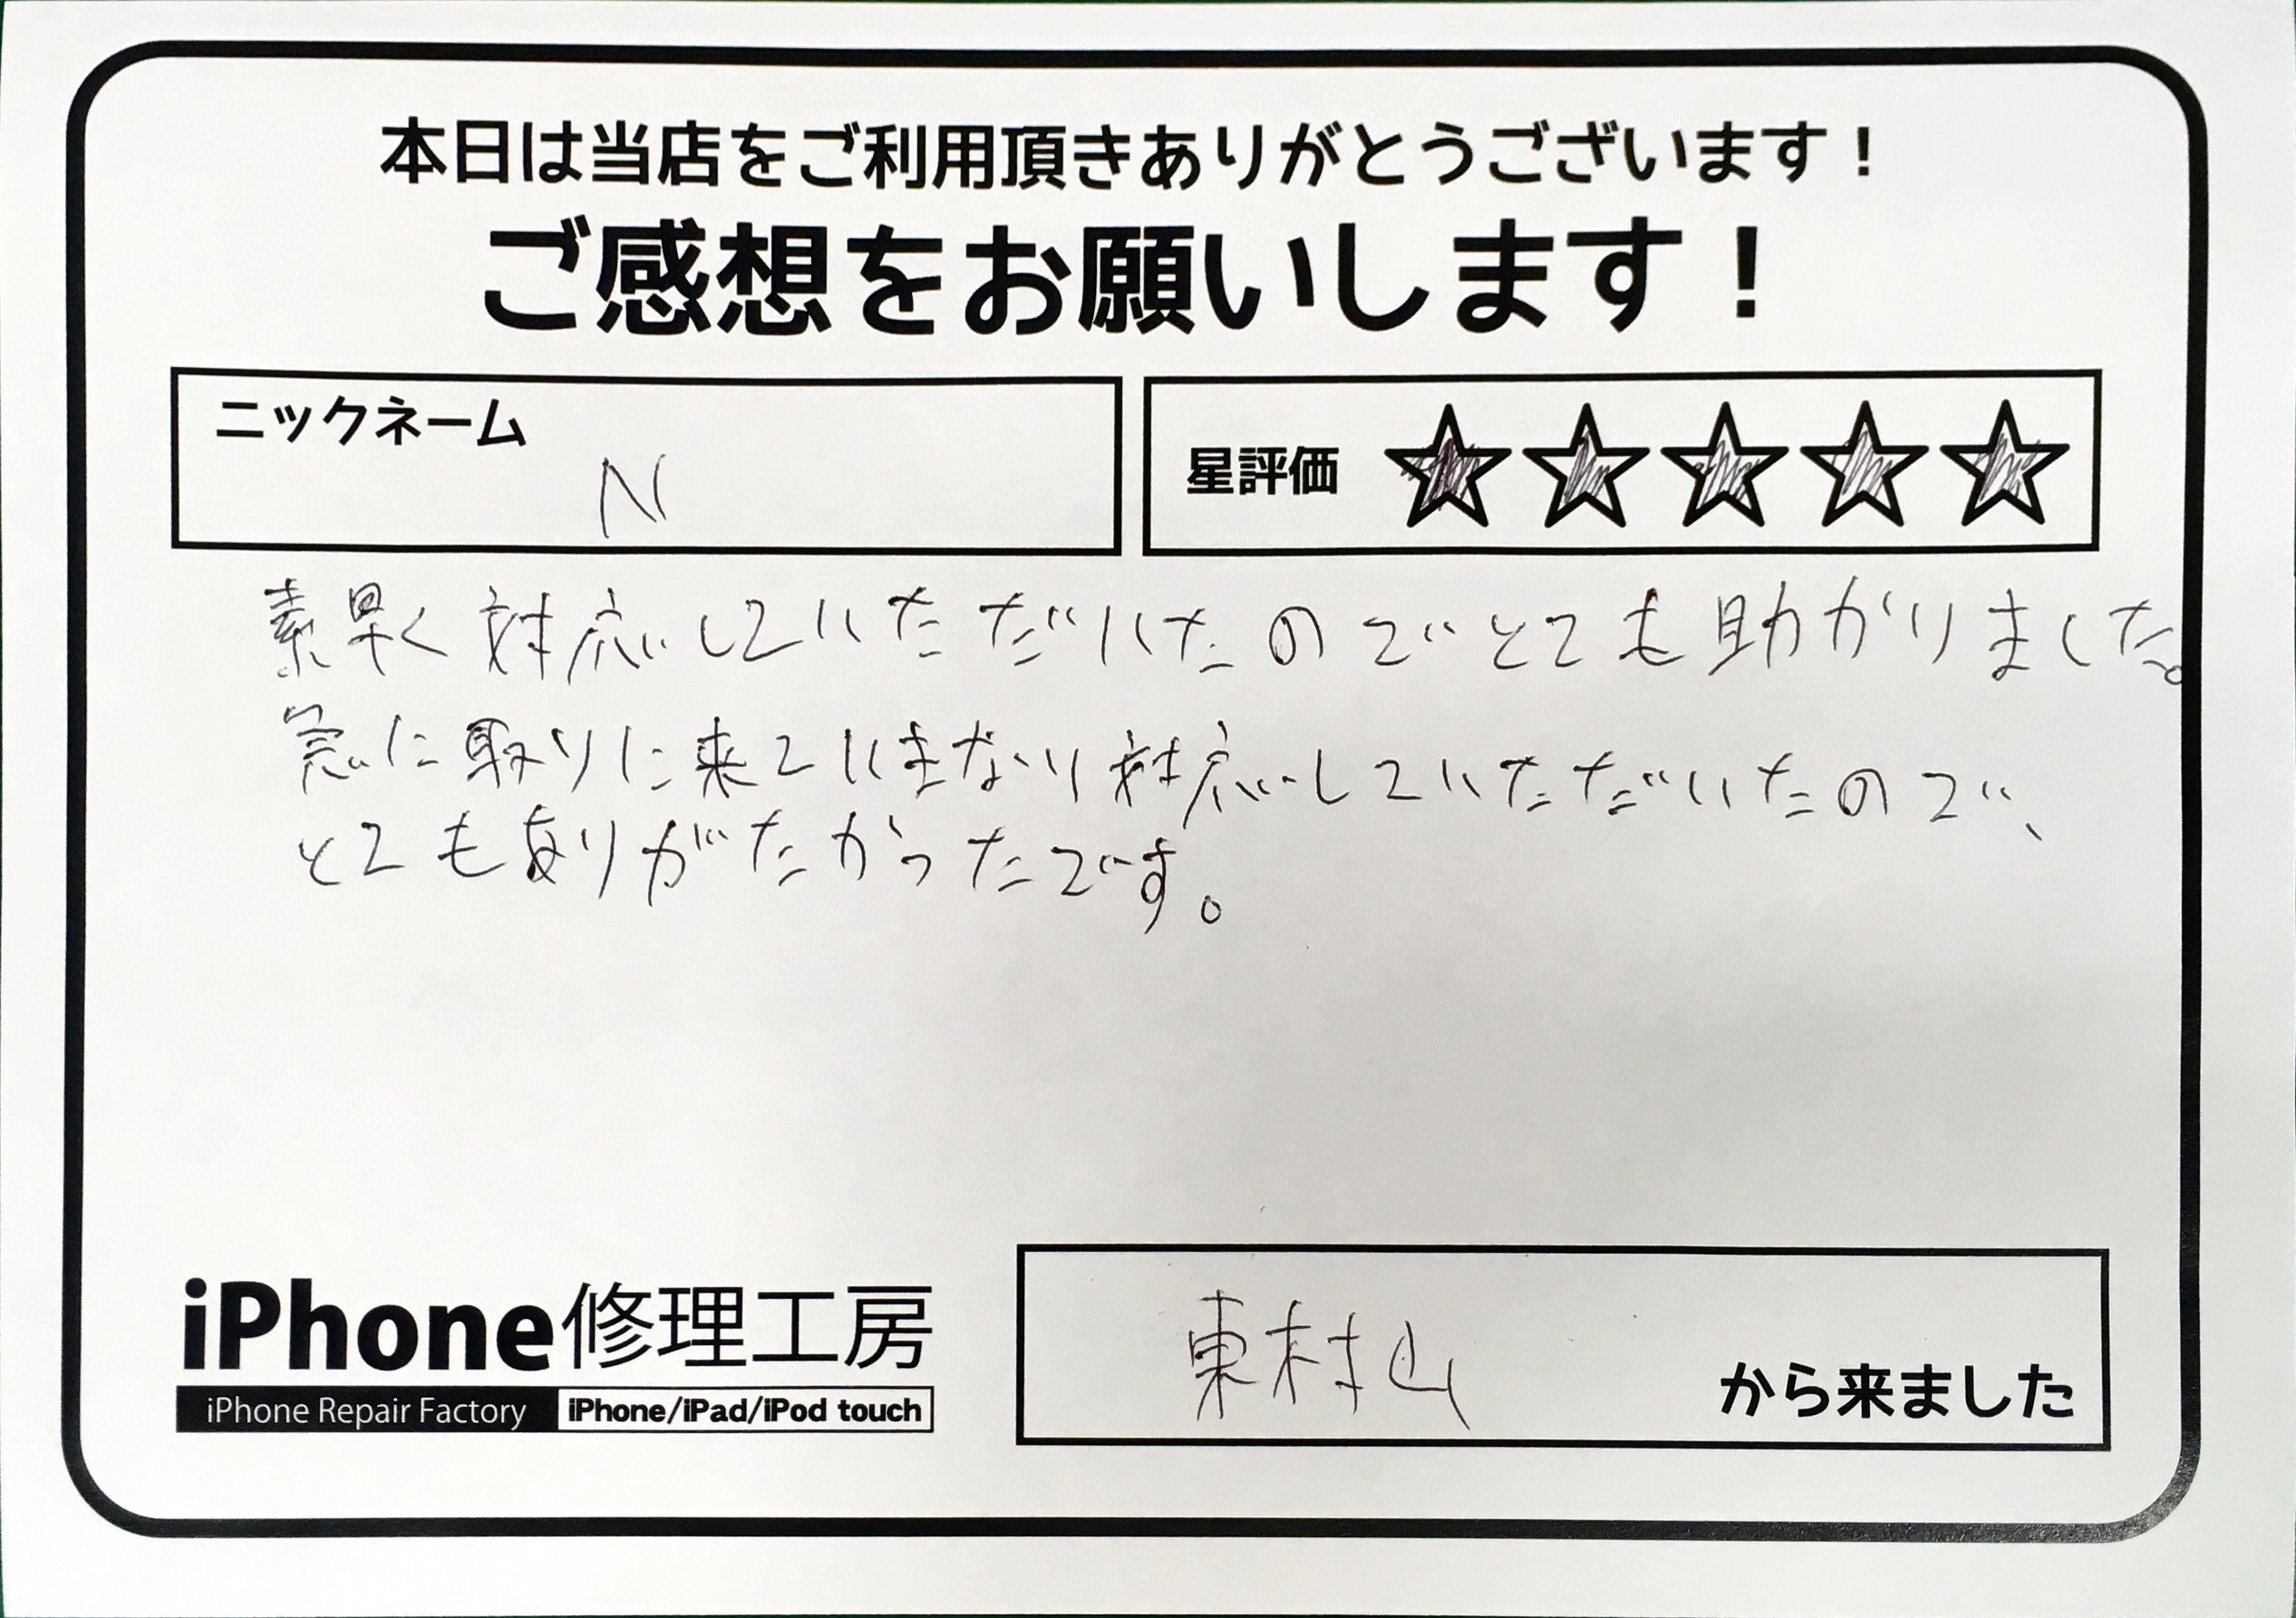 本日は当店をご利用頂きありがとうございます！
ご感想をお願いします！
ニックネーム
N
星評価 ☆☆☆☆☆
素早く対応していただいたのでとても助かりました。
急に取りに来ていきなり対応していただいたので、
とてもありがたかったです。
iPhone修理工房
iPhone Repair Factory iPhone/iPad/iPod touch
東村山 から来ました